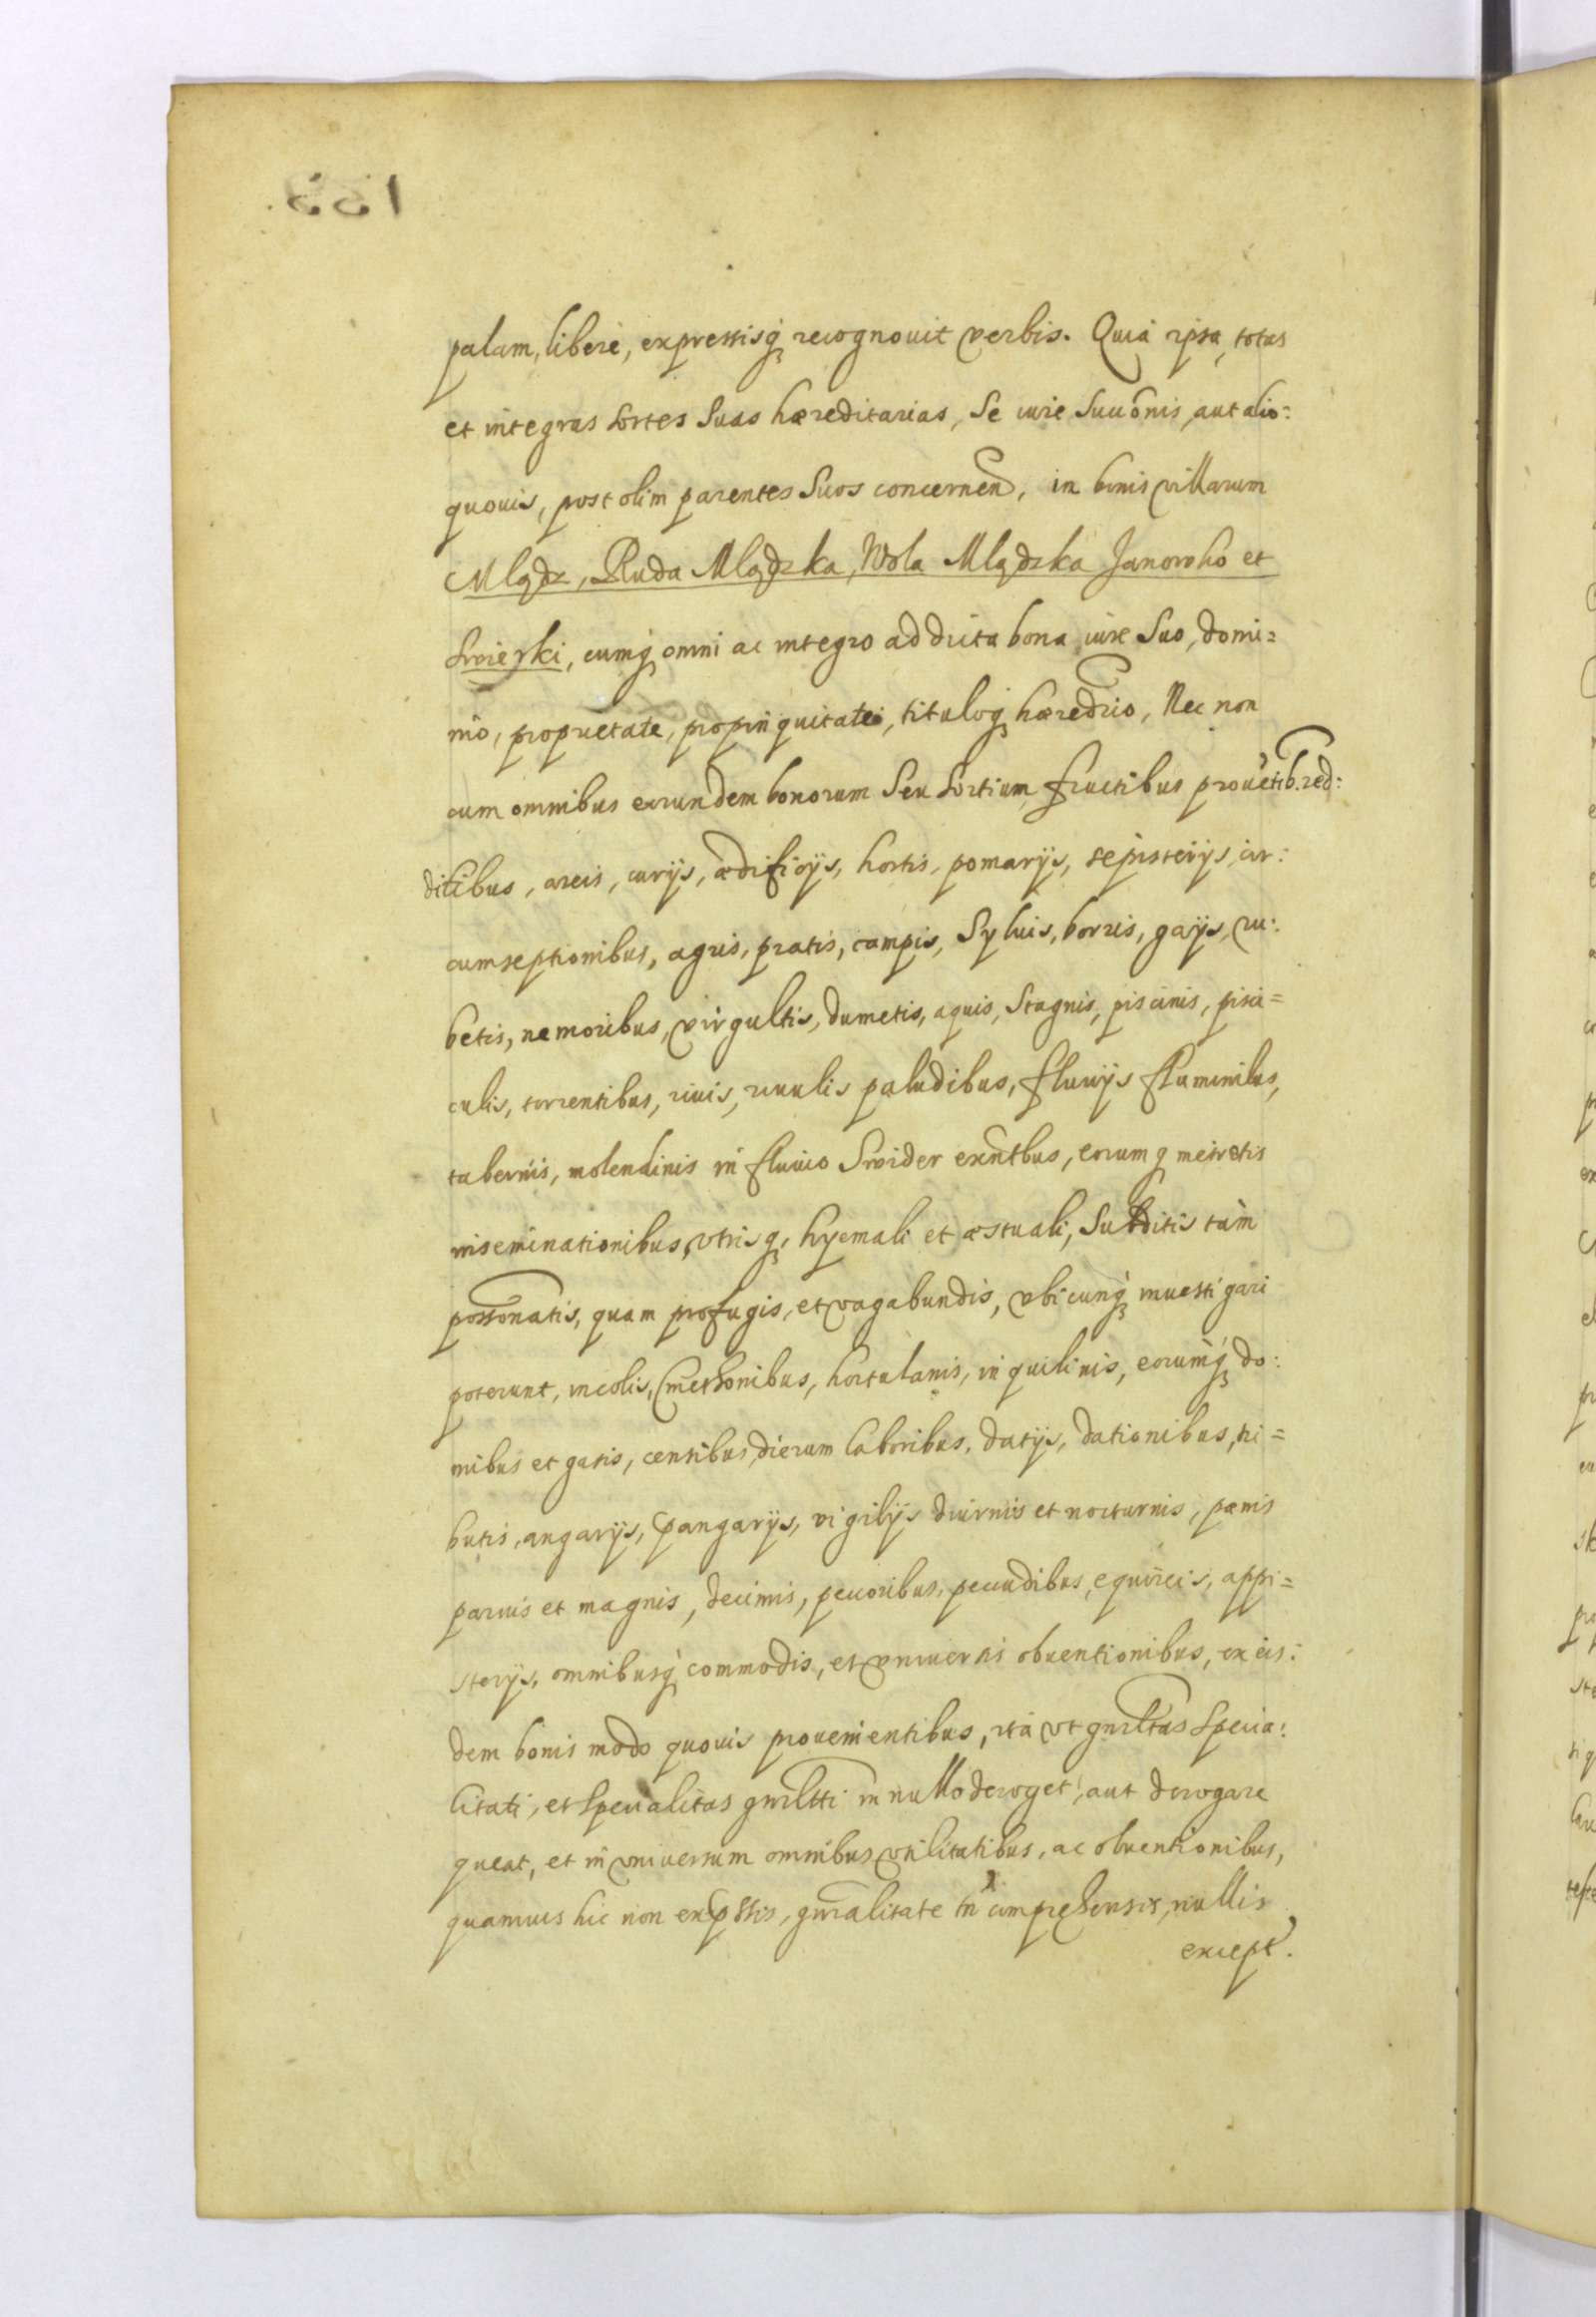 palam, libere, expressisq recognouit verbis. Quia ipsa, totas
et integras sortes suas hæreditarias, se iure succonis, aut alio:
quouis, post olim parentes suos concernen, in bonis villarum
Mlądz, Ruda Mlądzka, Wola Mlądzka Janowko et
Swierki, cumq omni ac integro ad dicta bona iure suo, domi=
nio, proprietate, propinquitate, tituloq hæredrio, Nec non
cum omnibus eorundem bonorum seu sortium fructibus prouetib. red:
ditibus, areis, curijs, ædificijs, hortis, pomarijs, sepisterijs, cir:
cumseptionibus, agris, pratis, campis, syluis, borris, gaijs, ru:
betis, nemoribus, virgultis, dumetis, aquis, stagnis, piscinis, pisci=
culis, torrentibus, riuis, riuulis paludibus, fluuijs fluminibus,
tabernis, molendinis in fluuio Swider exntbus, eorumq metretis
inseminationibus, vtrisq, hyemali et æstuali, subditis tam
possonatis, quam profugis, et vagabundis, vbicunq inuestigari
poterunt, incolis, Cmethonibus, hortulanis, inquilinis, eorumq do:
nibus et gatis, centibus, dierum laboribus, datijs, dationibus, tri=
butis, angarijs, pangarijs, vigilijs diurnis et nocturnis, pænis
paruis et magnis, decimis, pecoribus, pecudibus, equireis, appi=
sterijs, omnibusq commodis, et vniuersis obuentionibus, ex eis:
dem bonis modo quouis prouenientibus, ita vt gnrltas specia:
litati, et specialitas gnrltti in nullo deroget, aut derogare
queat, et in vniuersum omnibus vtilitatibus, ac obuentionibus,
quamuis hic non exp͞ssis, gnralitate tn comprehensis, nullis
except.